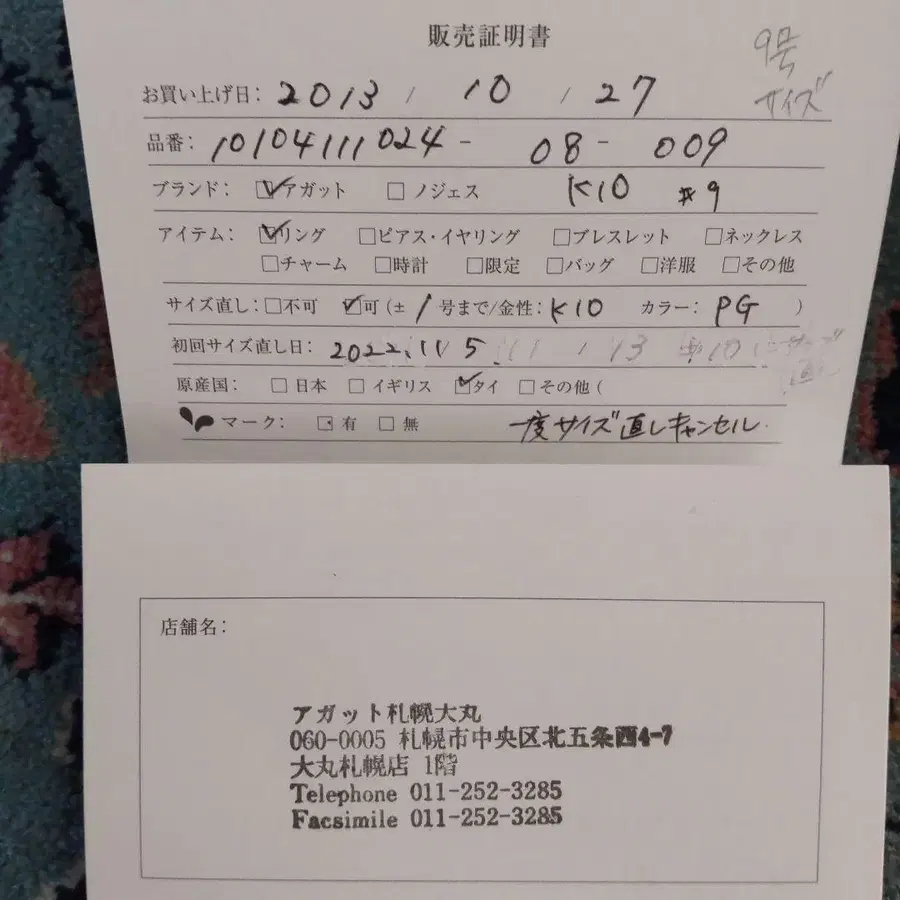 販売証明書
9号
サイズ
お買い上げ日: 2013 / 10 / 27
品番: 10104111024 - 08 - 009
ブランド: ☑アガット □ノジェス K10 #9
アイテム: ☑リング □ピアス・イヤリング □ブレスレット □ネックレス
□チャーム □時計 □限定 □バッグ □洋服 □その他
サイズ直し: □不可 ☑可 (± 1 号まで/金性: K10 カラー: PG )
初回サイズ直し日: 2022.11/5 11 / 13 #10 サイズ直し
原産国: □日本 □イギリス ☑タイ □その他 (
マーク: □有 □無 一度サイズ直しキャンセル.
店舗名:
アガット札幌大丸
060-0005 札幌市中央区北五条西4-7
大丸札幌店 1階
Telephone 011-252-3285
Facsimile 011-252-3285